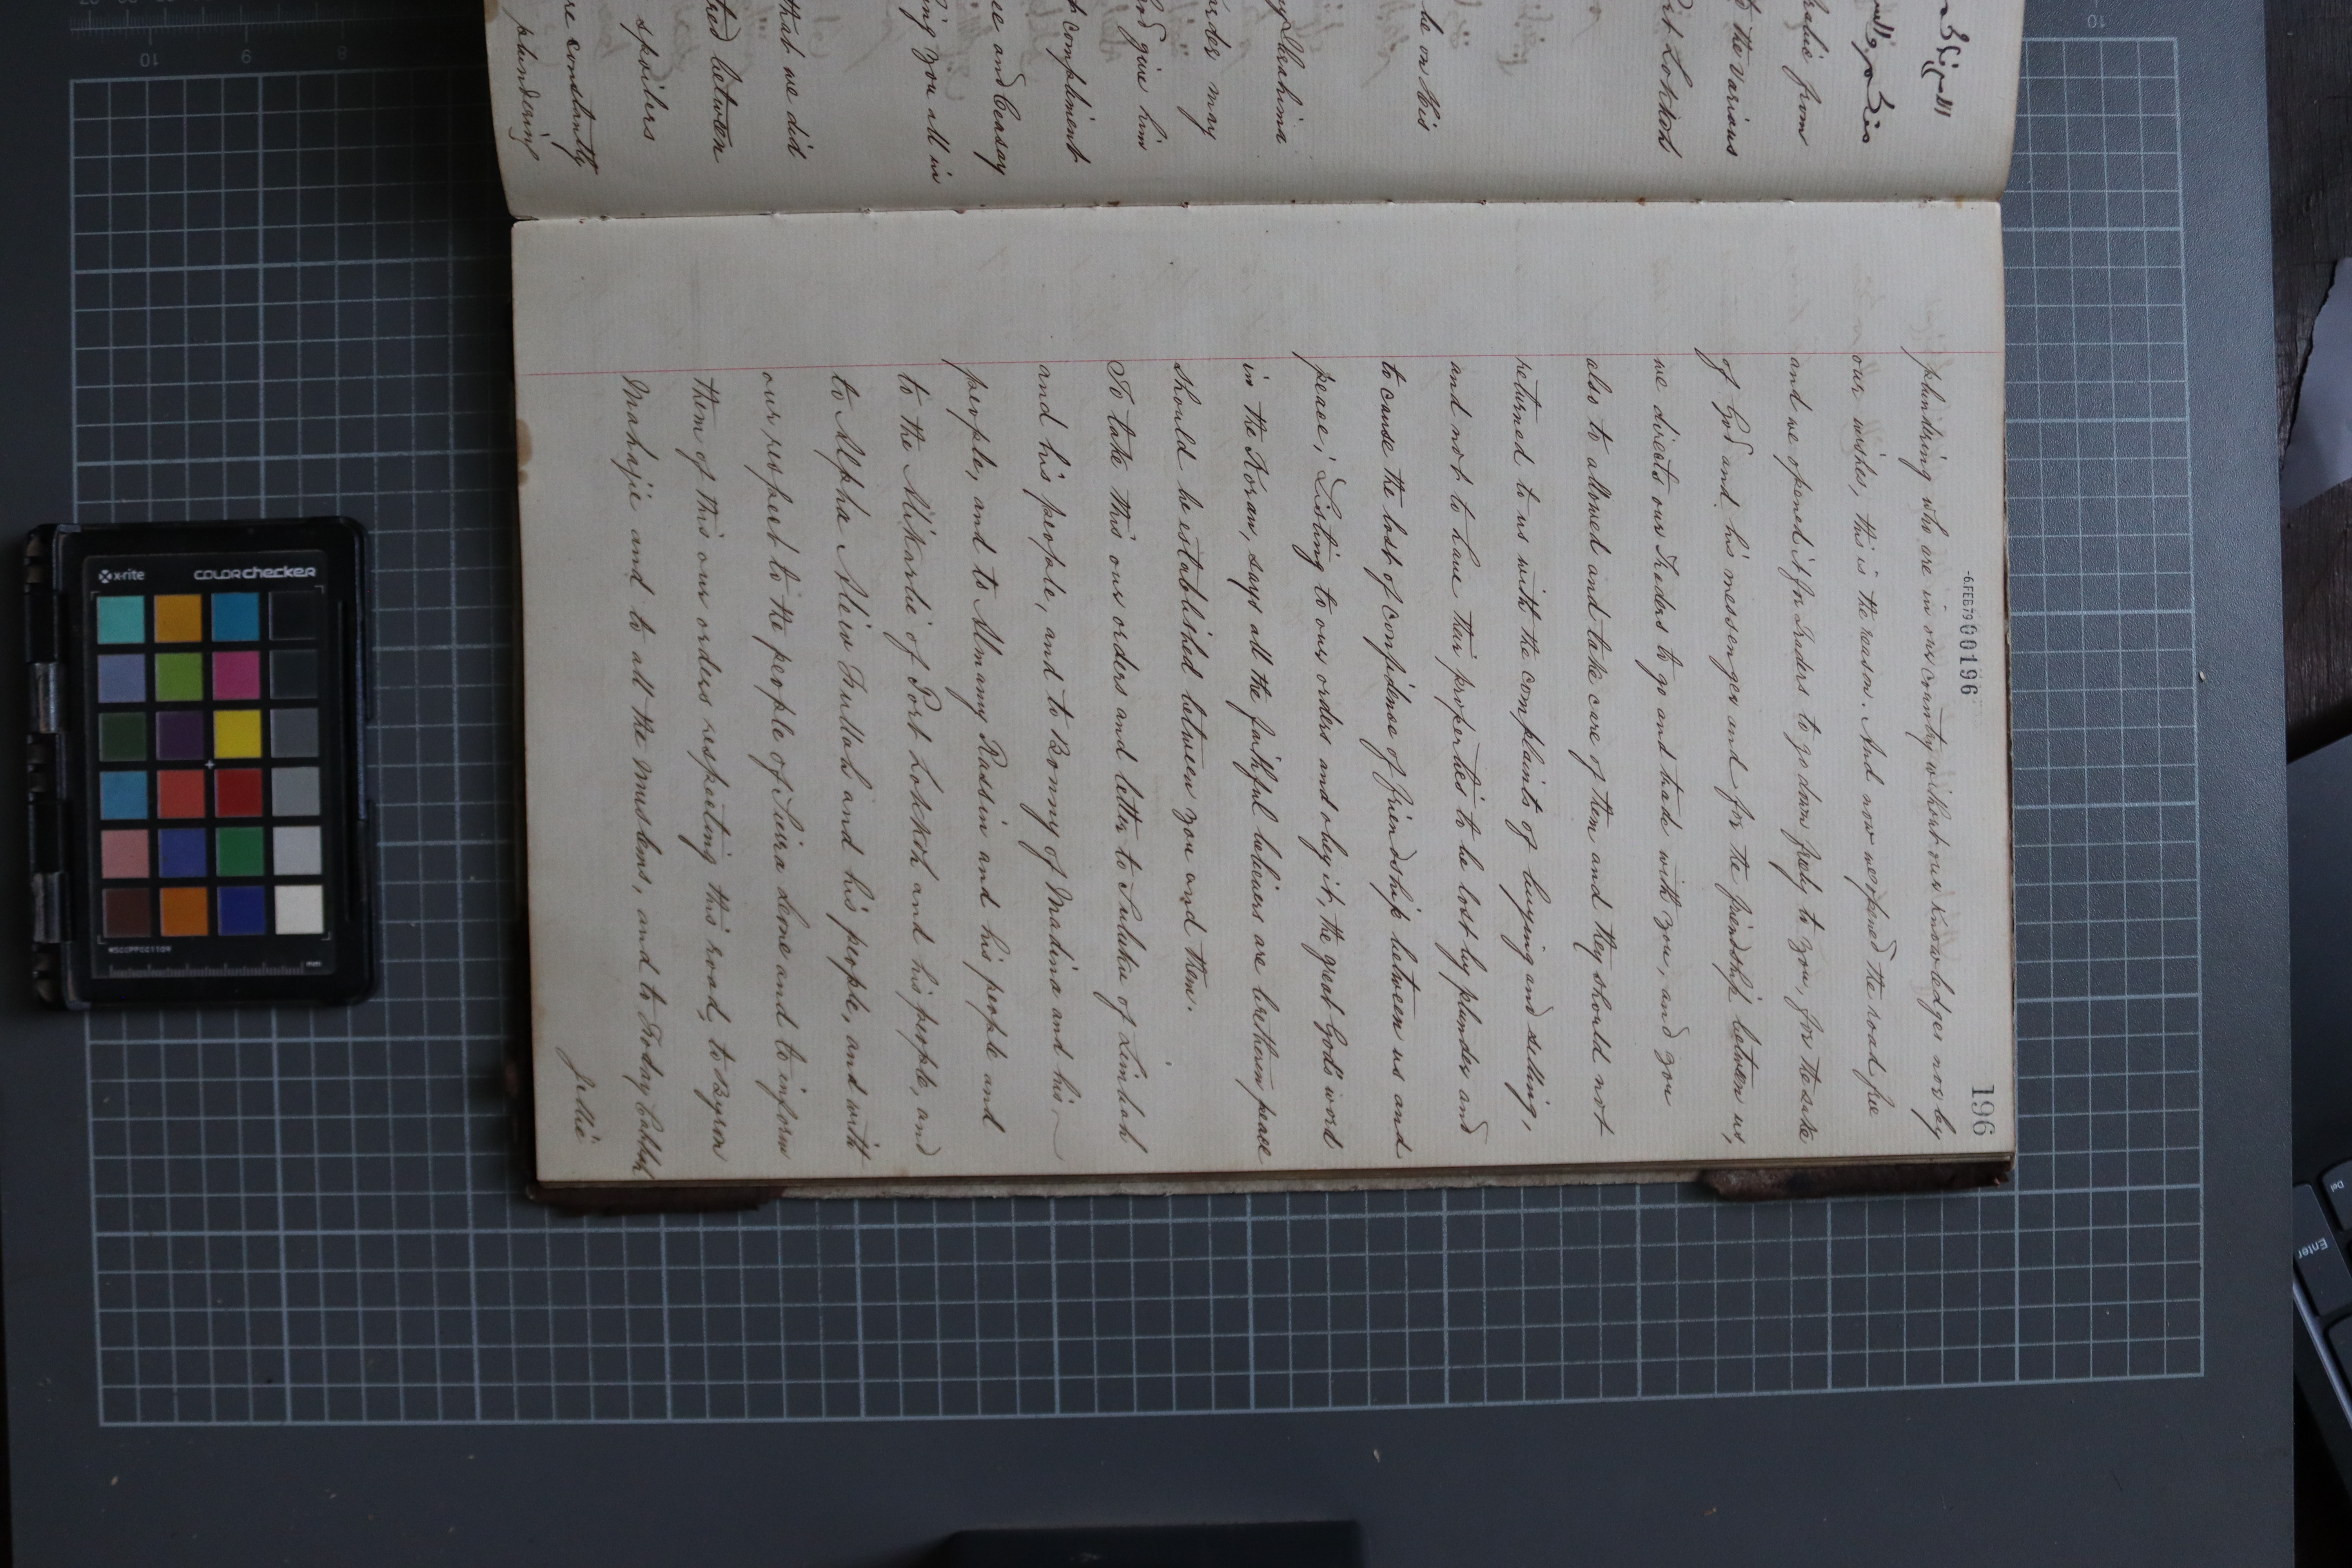 196
-6FEB79 00196
plundring who are in our country without our knowledges nor by
our wishes, this is the reason. And now we opened the road free
and we opened it for Traders to go down freely to you, for the sake
of God and his messenger and for the friendship between us,
we directs our Treders to go and trade with you, and you
also to allowed and take care of them and they should not
returned to us with the complaints of buying and selling,
and not to have their properties to be lost by plunder and
to cause the lost of confidence of friendship between us and
peace; Listing to our orders and obey it, the great God's word
in the Koran, says all the faithful believers are brethern peace
should be established between you and them.
To take this our orders and letter to Suluku of Limbah
and his people, and to Bonny of Madina and his
people, and to Almamy Rassin and his people and
to the Alikarlie of Port Lokkoh and his people, and
to Alpha Aliew Fullah and his people, and with
our respect to the people of Seira leone and to inform
them of this our orders respecting this road, to Byron
Mahajie and to all the muslems, and to Foday
Jellie
he on his
that we did
spoilers
re constantly
plundering
the various
from
orders may
give him
compliment
ee and Ceasay
ing you all in
between
Port Lokkoh
x-rite
colorchecker
MSCCPPCC1109
mm
Enter
Del
10
10
9
8